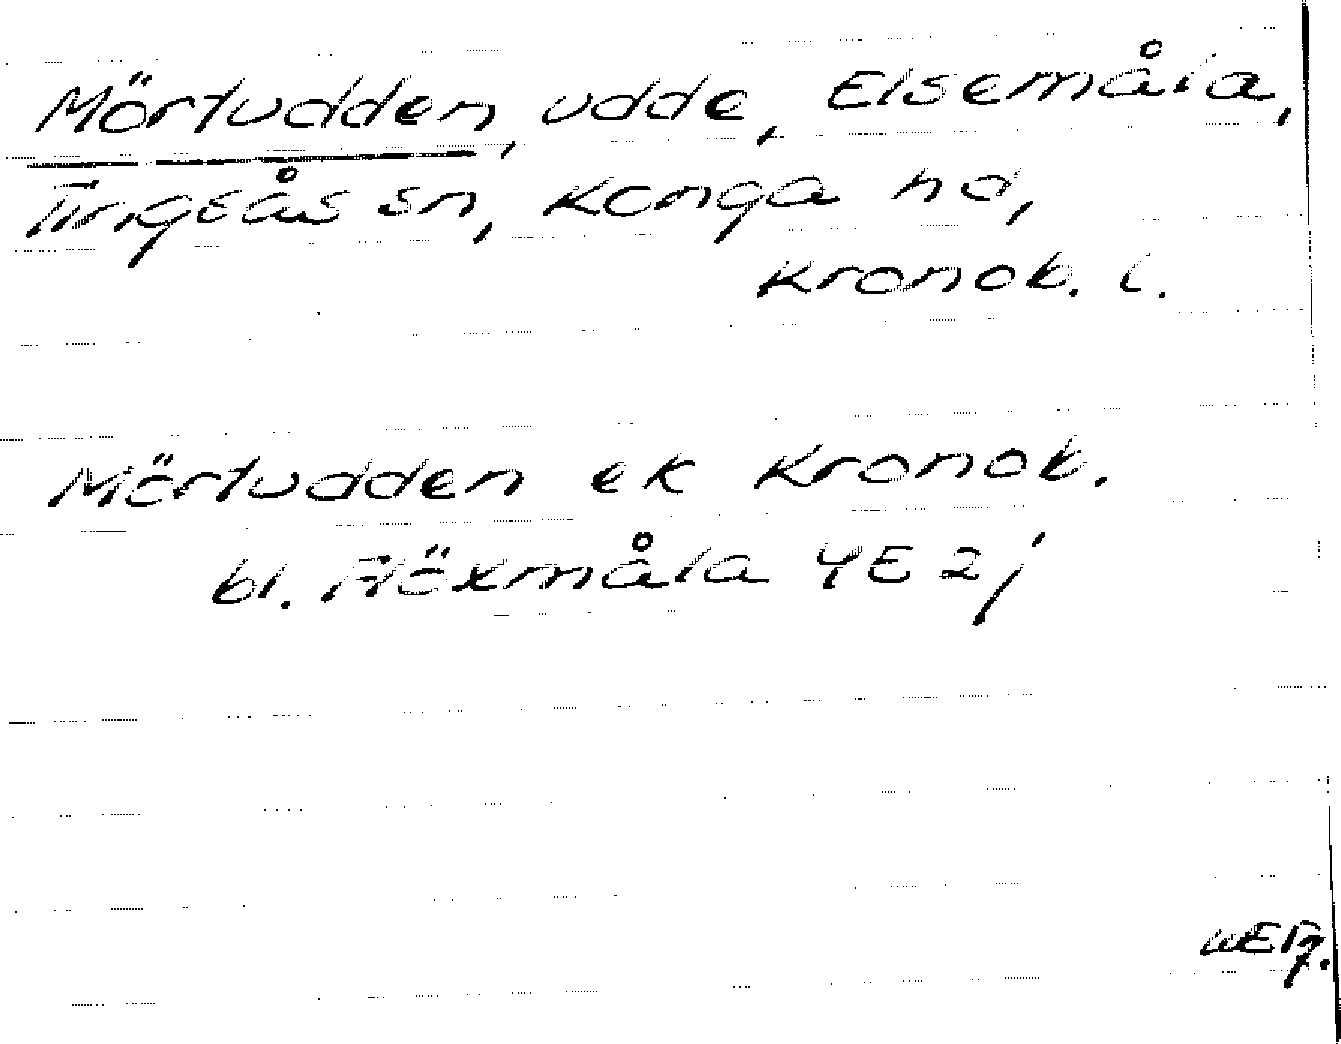 Mörtudden, udde, Elsemåla,
Tingsås sn, Konga hd,
Kronob. l.
Mörtudden ek Kronob.
bl. Flöxmåla 4E 2j